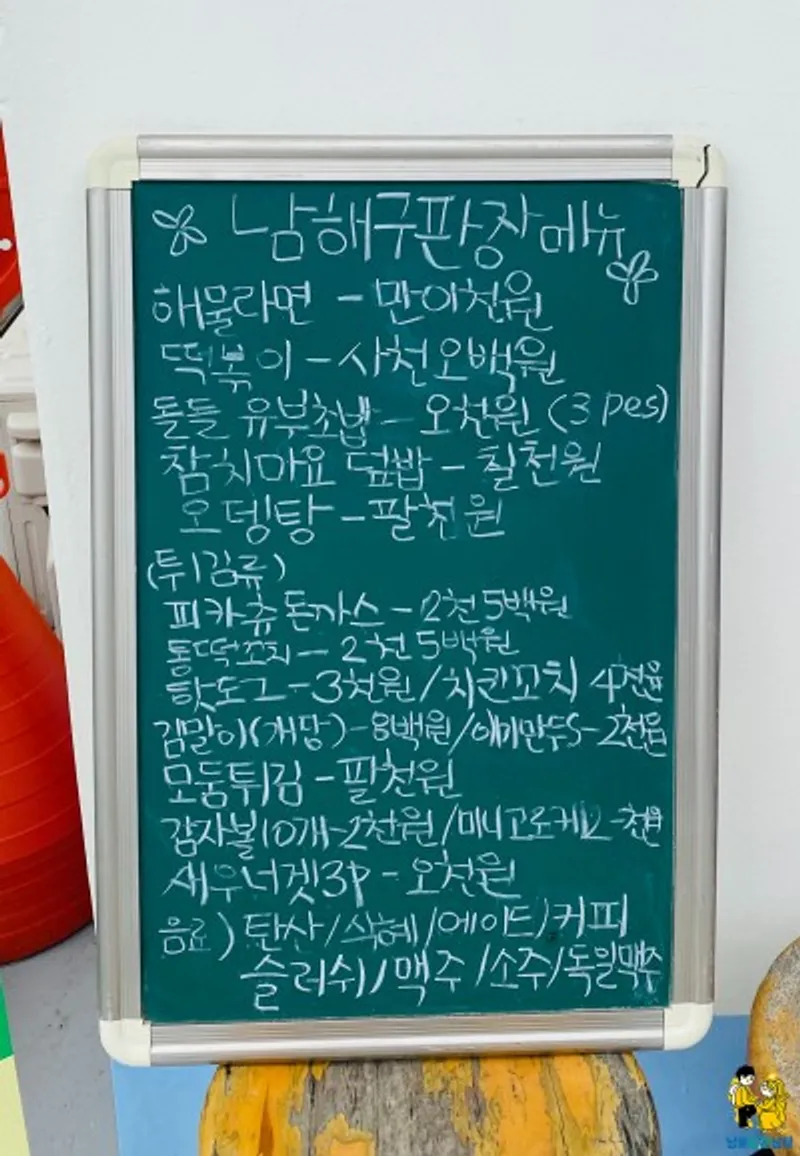 남해구판장 메뉴
해물라면 - 만이천원
떡볶이 - 사천오백원
돌돌 유부초밥 - 오천원 (3 pes)
참치마요 덮밥 - 칠천원
오뎅탕 - 팔천원
(튀김류)
피카츄돈까스 - 2천5백원
통떡꼬치 - 2천5백원
핫도그 - 3천원/치킨꼬치 4천원
김말이(개당) - 8백원/야끼만두5 - 2천원
모둠튀김 - 팔천원
감자볼10개 - 2천원/미니고로케2 - 천원
새우너겟3P - 오천원
음료) 탄산/식혜/에이드/커피
슬러쉬/맥주/소주/독일맥주